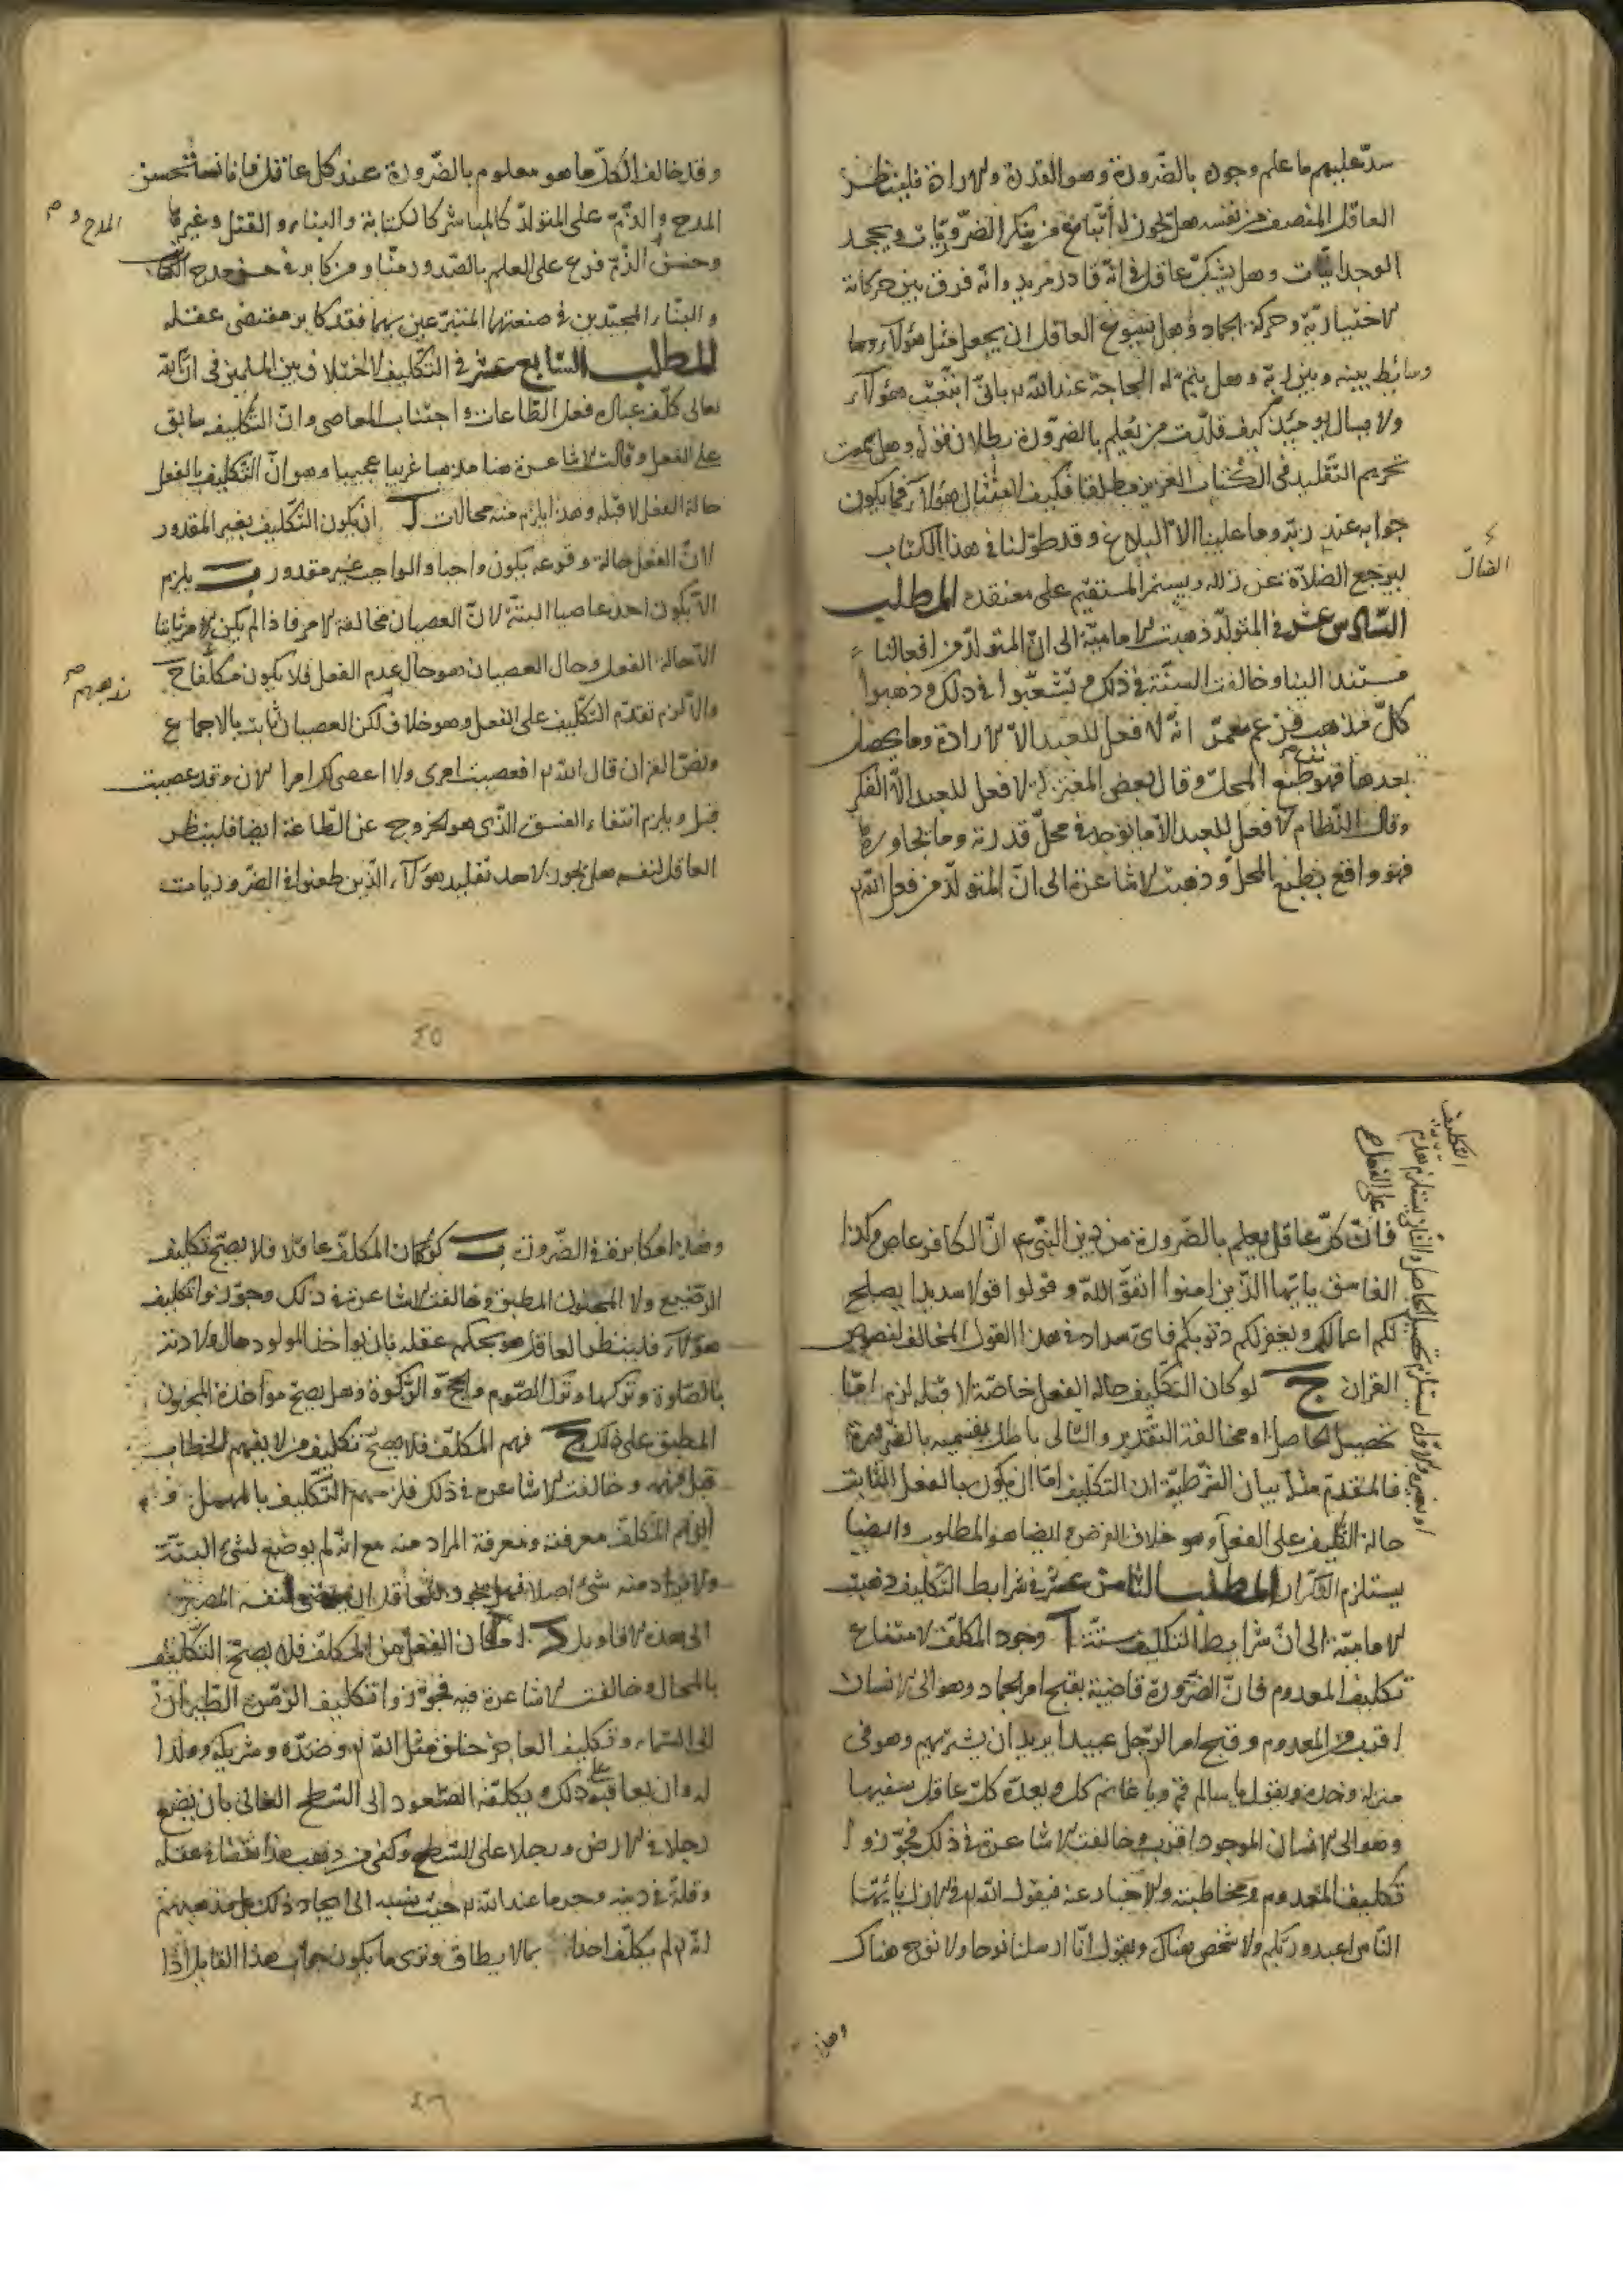 سدّ عليهم ما علم وجوده بالضّرورة وهو القدرة والارادة فلينظر
العاقل المنصف من نفسه هل يجوز له اتّباع من ينكر الضّروريّات ويجحد
الوجدانيّات وهل يشكّ عاقل في انّه قادر مريد وانّه فرق بين حركاته
الاختياريّة وحركة الجماد وهل يسوغ العاقل ان يجعل مثل هؤلاء
وسائط بينه وبين ربّه وهل يتم له المحاجّة عند الله بانّي اتّبعت هؤلاء
ولا يسال يومئذ كيف قلّدت من تعلم بالضّرورة بطلان قوله وهل سمعت
تحريم التّقليد في الكتاب العزيز مطلقا فكيف امتثال هؤلاء فما يكون
جوابه عند ربّه وما علينا الا البلاغ وقد طوّلنا في هذا الكتاب
الضالّ
ليرجع الضلاّة عن زلله ويستمر المستقيم على معتقده المطلب
السّادس عشر في المتولّد ذهبت الاماميّة الى انّ المتولّد من افعالنا
مستند الينا وخالفت السنّة في ذلك وتشعّبوا في ذلك وذهبوا
كلّ مذهب فزعم معمّر انّه لا فعل للعبد الاّ الارادة وما يحصل
بعدها فهو طبع المحلّ وقال بعض المعتزلة لا فعل للعبد الاّ الفكر
وقال النّظام لا فعل للعبد الاّ ما يوجد في محلّ قدرته وما تجاوزها
فهو واقع بطبع المحلّ وذهبت الاشاعرة الى انّ المتولّد من فعل الله
وقد خالف الكلّ ما هو معلوم بالضّرورة عند كل عاقل فانا نستحسن
المدح و
المدح والذّم على المتولّد كالمباشر كالكتابة والبناء والقتل وغيرها
وحسن الذّم فرع على العلم بالصّدور منّا ومن كابر في حسن مدح الكاتب
والبناء المجيدين في صنعتهما المتبرّعين بهما فقد كابر مقتضى عقله
المطلب السّابع عشر في التكليف لا اختلاف بين المسلمين في انّ الله
تعالى كلّف عباده فعل الطّاعات واجتناب المعاصي وانّ التّكليف سابق
على الفعل وقالت الاشاعرة هنا مذهبا غريبا عجيبا وهو انّ التّكليف بالفعل
حالة الفعل لا قبله وهذا يلزم منه محالات آ ان يكون التّكليف بغير المقدور
لانّ الفعل حالة وقوعه يكون واجبا والواجب غير مقدور ب يلزم
الاّ يكون احد عاصيا البتّة لانّ العصيان مخالفة الامر فاذا لم يكن الامر ثابتا
الاّ حالة الفعل وحال العصيان هو حال عدم الفعل فلا يكون مكلّفا ح
مذهبهم
والاّ لزم تقدّم التكليف على الفعل وهو خلاف لكن العصيان ثابت بالاجماع
ونصّ القران قال الله افعصيت امري ولا اعصي لك امرا الان وقد عصيت
قبل ويلزم انتفاء الفسق الّذي هو الخروج عن الطّاعة ايضا فلينظر
العاقل لنفسه هل يجوز لاحد تقليد هؤلاء الّذين طعنوا في الضّروريات
٤٥
التكليف
على الفعل
فانّ كلّ عاقل يعلم بالضّرورة من دين النّبي انّ الكافر عاص وكذا
الفاسق يا ايّها الّذين امنوا اتقوا الله وقولوا قولا سديدا يصلح
لكم اعمالكم ويغفر لكم ذنوبكم فاي سداد في هذا القول المخالف لنصوص
القران ج لو كان التّكليف حالة الفعل خاصّة لا قبله لزم امّا
تحصيل الحاصل او مخالفة التّقدير والتّالي باطل بقسميه بالضّرورة
فالمقدّم مثله بيان الشّرطيّة ان التكليف امّا ان يكون بالفعل الثابت
حالة التّكليف على الفعل وهو خلاف الفرض ايضا هو المطلوب وايضا
يستلزم التكرار المطلب الثامن عشر في شرايط التّكليف ذهبت
الاماميّة الى انّ شرايط التّكليف ستّة آ وجود المكلّف لامتناع
تكليف المعدوم فانّ الضّرورة قاضية بقبح امر الجماد وهو الى الانسان
اقرب من المعدوم وقبح امر الرّجل عبيدا يريد ان يشتريهم وهو في
منزله وحده ويقول يا سالم قم ويا غانم كل ويعدّه كلّ عاقل سفيها
وهو الى الانسان الموجود اقرب وخالفت الاشاعرة في ذلك فجوّزوا
تكليف المعدوم ومخاطبته والاخبار عنه فيقول الله في الازل يا ايّها
النّاس اعبدوا ربّكم ولا شخص هناك ويقول انّا ارسلنا نوحا ولا نوح هناك
وهذه
وهذه مكابرة في الضّرورة ب كون المكلّف عاقلا فلا يصحّ تكليف
الرّضيع ولا المجنون المطبق وخالفت الاشاعرة في ذلك وجوّزوا تكليف
هؤلاء فلينظر العاقل هل يحكم عقله بان يؤاخذ المولود حال ولادته
بالصّلوة وتركها وترك الصّوم والحجّ والزّكوة وهل يصحّ مؤاخذة المجنون
المطبق على ذلك ج فهم المكلّف فلا يصحّ تكليف من لا يفهم الخطاب
قبل فهمه وخالفت الاشاعرة في ذلك فلزمهم التّكليف بالمهمل و
الزام المكلّف معرفته ومعرفة المراد منه مع انّه لم يوضع لشيء البتّة
ولا يراد منه شيء اصلا فهل يجوز للعاقل ان يرضى لنفسه المصير
الى هذه الاقاويل د امكان الفعل من المكلّف فلا يصحّ التّكليف
بالمحال وخالفت الاشاعرة فيه فجوّزوا تكليف الزّمن الطّيران
الى السّماء وتكليف العاجز خلق مثل الله وضدّه وشريكه وولدا
له وان يعاقبه على ذلك ويكلّفه الصّعود الى السّطح العالي بان يضع
رجلا في الارض ورجلا على السّطح وكفى من ذهب هذا نقصا في عقله
وقلّة في دينه وجرما عند الله حيث نسبه الى ايجاد ذلك بل مذهبهم
انّه لم يكلّف احدا الاّ بما لا يطاق وترى ما يكون جواب هذا القايل اذا
٤٦